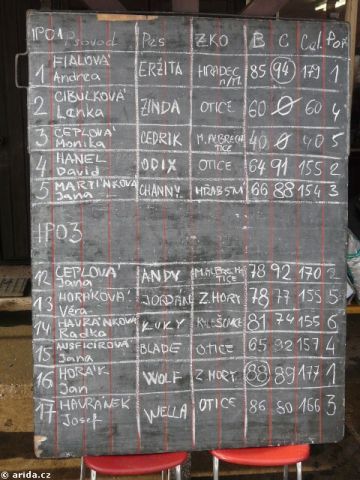 IPO1 Psovod Pes ZKO B C Cel. Poř
1 FIALOVÁ Andrea ERŽITA HRADEC n/M. 85 94 179 1
2 CIBULKOVÁ Lenka ZINDA OTICE 60 0 60 4
3 ČEPLOVÁ Monika CEDRIK M. ALBRECHTICE 40 0 40 5
4 HANEL David ODIX OTICE 64 91 155 2
5 MARTÍNKOVÁ Jana CHANNY HRABSTVÍ 66 88 154 3
IPO3
12 ČEPLOVÁ Jana ANDY M. ALBRECHTICE 78 92 170 2
13 HORÁKOVÁ Věra JORDÁN Z. HORY 78 77 155 5
14 HAVRÁNKOVÁ Radka KUKY 81 74 155 6
15 Jana BLADE OTICE 65 92 157 4
16 HORÁK Jan WOLF Z HORY 88 89 177 1
17 HAVRÁNEK Josef WELLA OTICE 86 80 166 3
© arida.cz